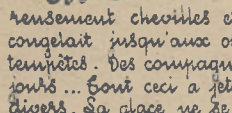 reusement chevilles e
congelait jusqu'aux o
tempêtes. Des compagn
jours... Tout ceci a jet
divers. La glace ne se